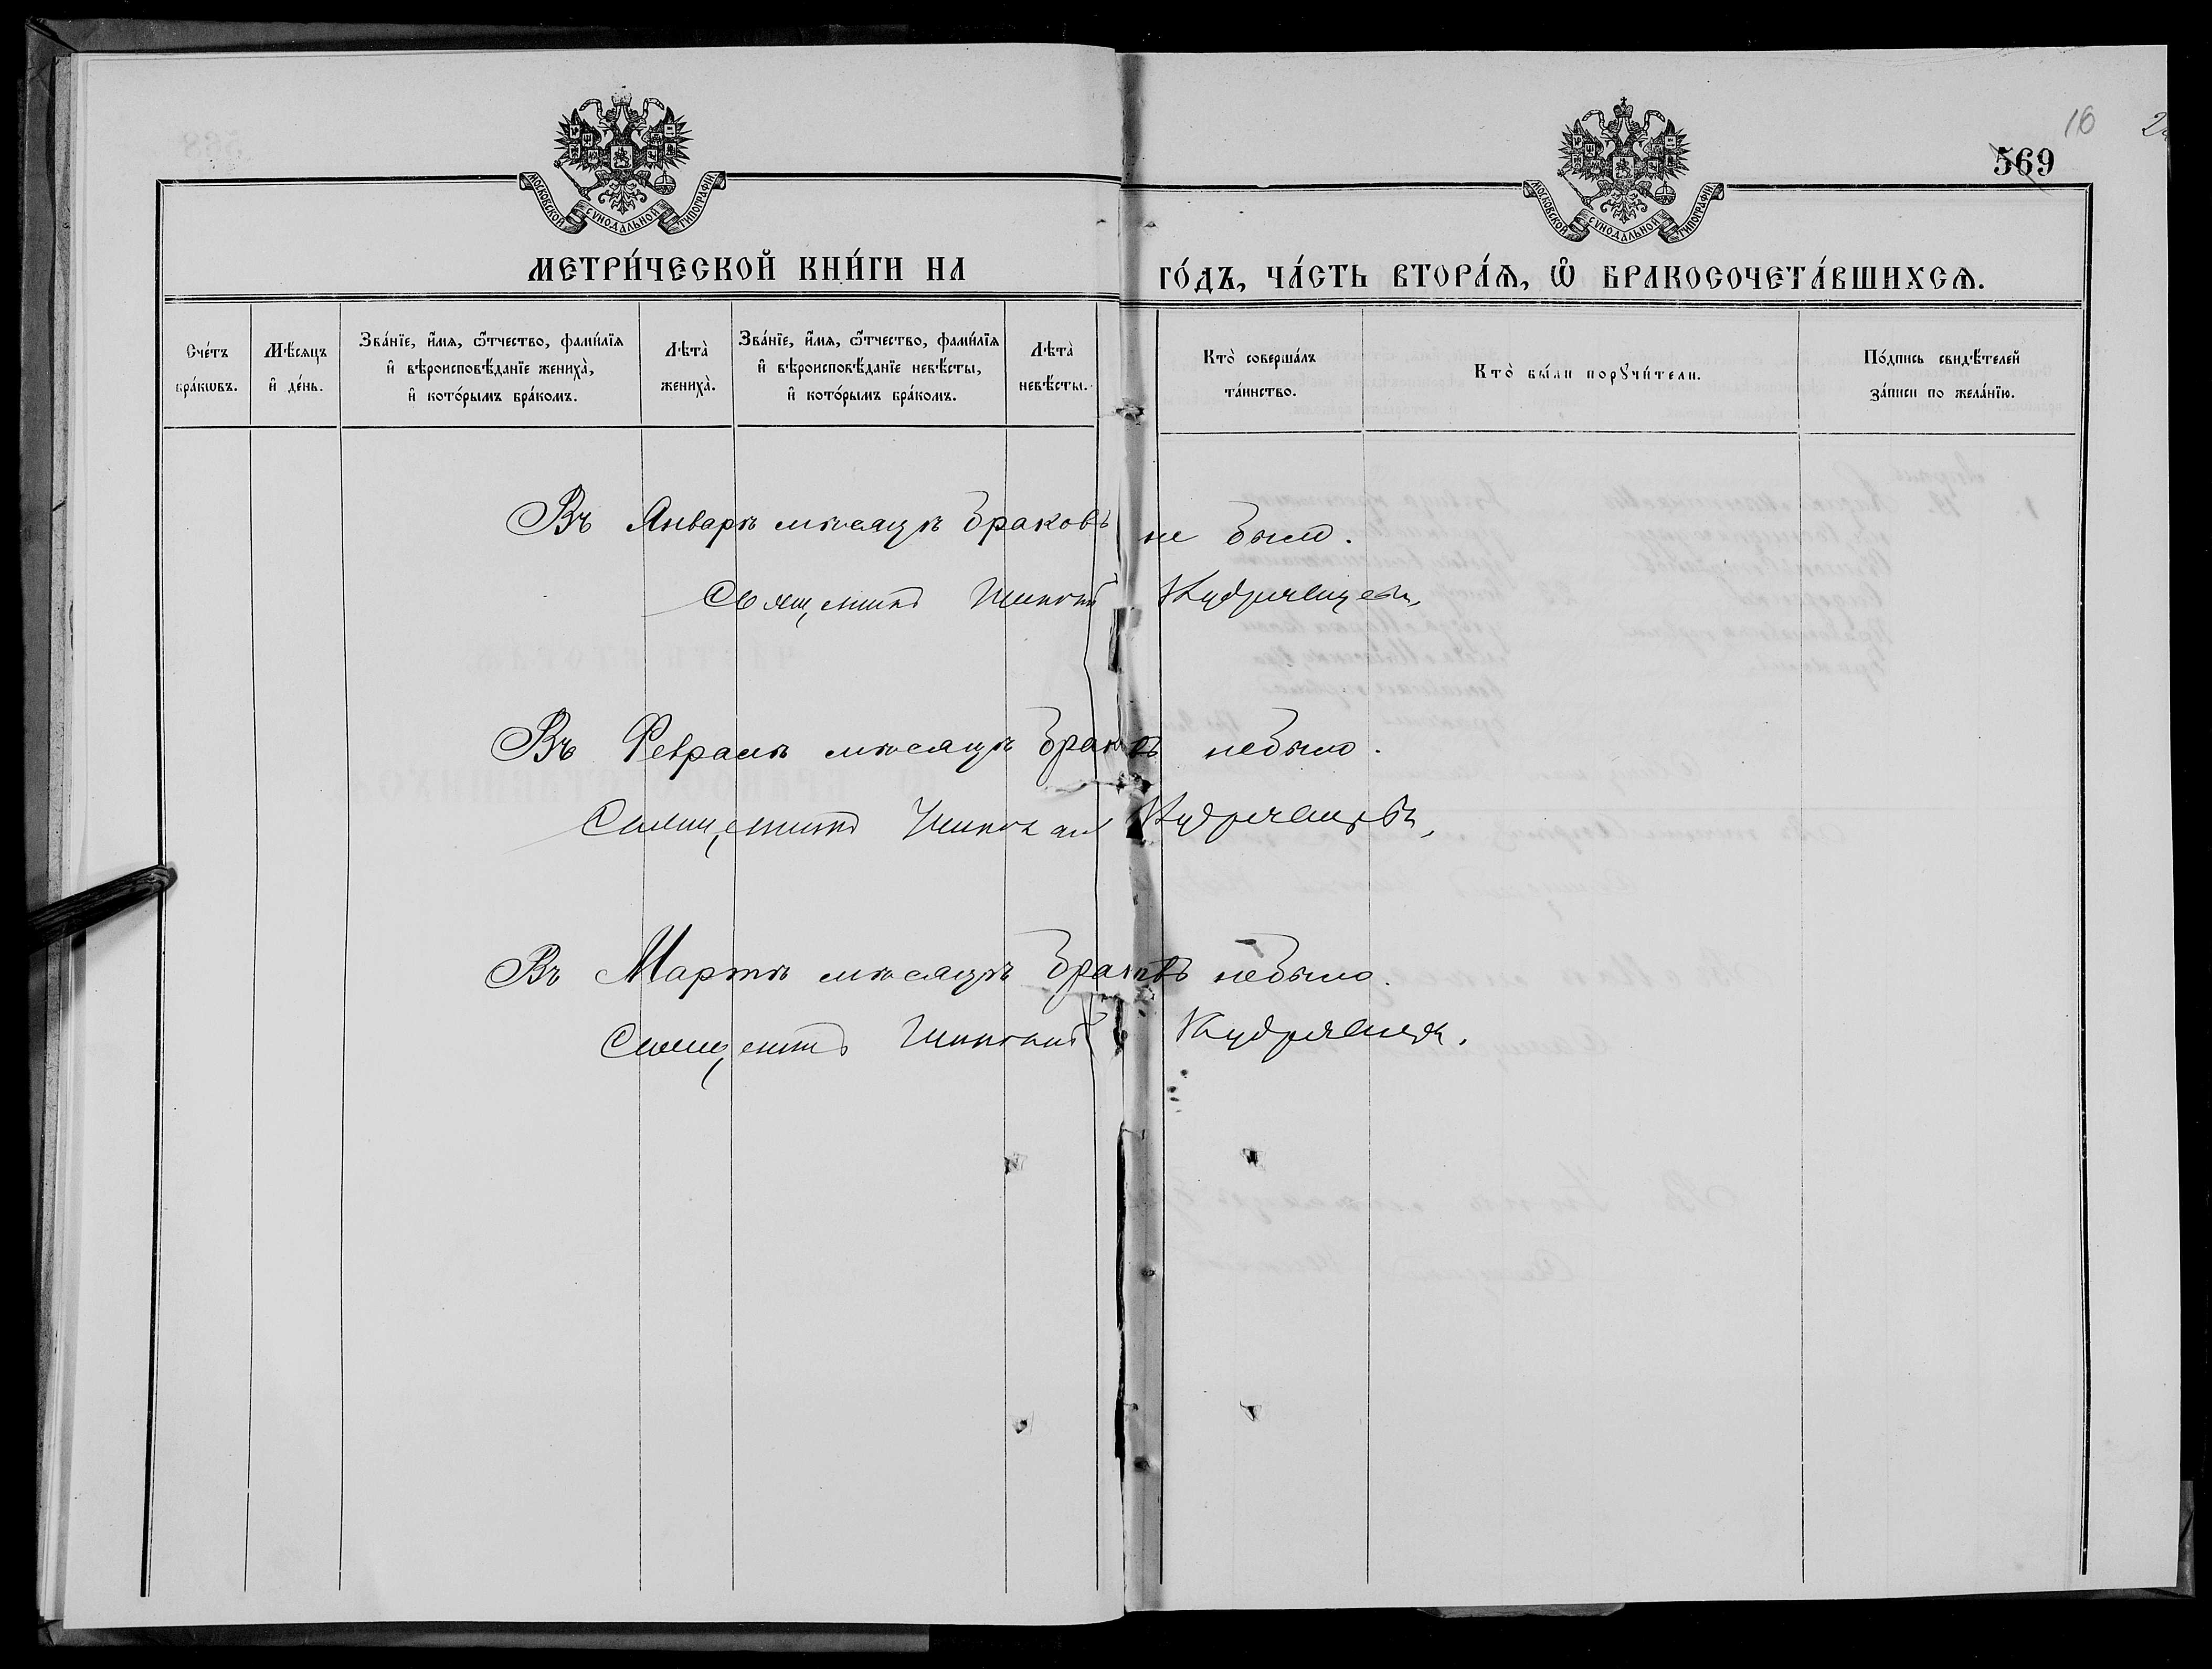 16
569
МОСКОВСКОЙ СѴНОДАЛЬНОЙ ТИПОГРАФІИ
МОСКОВСКОЙ СѴНОДАЛЬНОЙ ТИПОГРАФІИ
МЕТРИ́ЧЕСКОЙ КНИ́ГИ НА ГО́ДЪ, ЧА́СТЬ ВТОРА́Ѧ, Ѽ БРАКОСОЧЕТА́ВШИХСѦ.
Сче́тъ
бра́кѡвъ.
Мѣ́сѧцъ
и҆ де́нь.
Зва́нїе, и҆́мѧ, ѻ҆́тчество, фами́лїѧ
и҆ вѣроисповѣ́данїе жениха̀,
и҆ кото́рымъ бра́комъ.
Лѣта̀
жениха̀.
Зва́нїе, и҆́мѧ, ѻ҆́тчество, фами́лїѧ
и҆ вѣроисповѣ́данїе невѣ́сты,
и҆ кото́рымъ бра́комъ.
Лѣта̀
невѣ́сты.
Кто̀ соверша́лъ
та́инство.
Кто̀ бы́ли порꙋчи́тели.
По́дпись свидѣ́телей
за́писи по жела́нїю.
Въ Январѣ мѣсяцѣ браковъ не было.
Священникъ Кудрявцевъ,
Въ Февралѣ мѣсяцѣ браковъ небыло.
Священникъ Кудрявцевъ,
Въ Мартѣ мѣсяцѣ браковъ небыло.
Священникъ Кудрявцевъ.